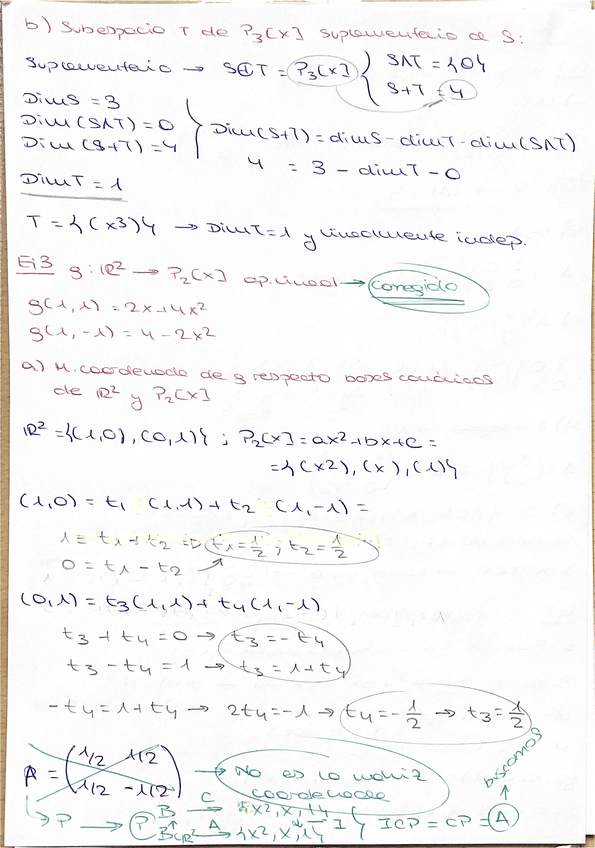 b) Subespacio T de P₃[x] suplementario de S:
Suplementario → S⊕T = P₃[x] { S∩T = {0}
S+T = 4
Dim S = 3
Dim (S∩T) = 0
Dim (S+T) = 4
Dim(S+T) = dim S - dim T - dim(S∩T)
4 = 3 - dim T - 0
Dim T = 1
T = {(x3)} → Dim T = 1 y linealmente indep.
Ej 3 g: ℝ² → P₂[x] ap. lineal → corregido
g(1,1) = 2x+4x²
g(1,-1) = 4-2x²
a) M. coordenada de g respecto bases canónicas
de ℝ² y P₂[x]
ℝ² = {(1,0), (0,1)} ; P₂[x] = ax²+bx+c =
= {(x2), (x), (1)}
(1,0) = t₁ (1,1) + t₂ (1,-1) =
1 = t₁ + t₂ ⇒ t₁ = 1/2 ; t₂ = 1/2
0 = t₁ - t₂
(0,1) = t₃(1,1) + t₄(1,-1)
t₃ + t₄ = 0 → t₃ = -t₄
t₃ - t₄ = 1 → t₃ = 1+t₄
-t₄ = 1+t₄ → 2t₄ = -1 → t₄ = -1/2 → t₃ = 1/2
A = (1/2 1/2
1/2 -1/2) → No es la matriz
coordenada
buscamos
↳ P → P B C→ {x², x, 1}
BCℝ² A→ {x², x, 1} I } ICP = CP = A